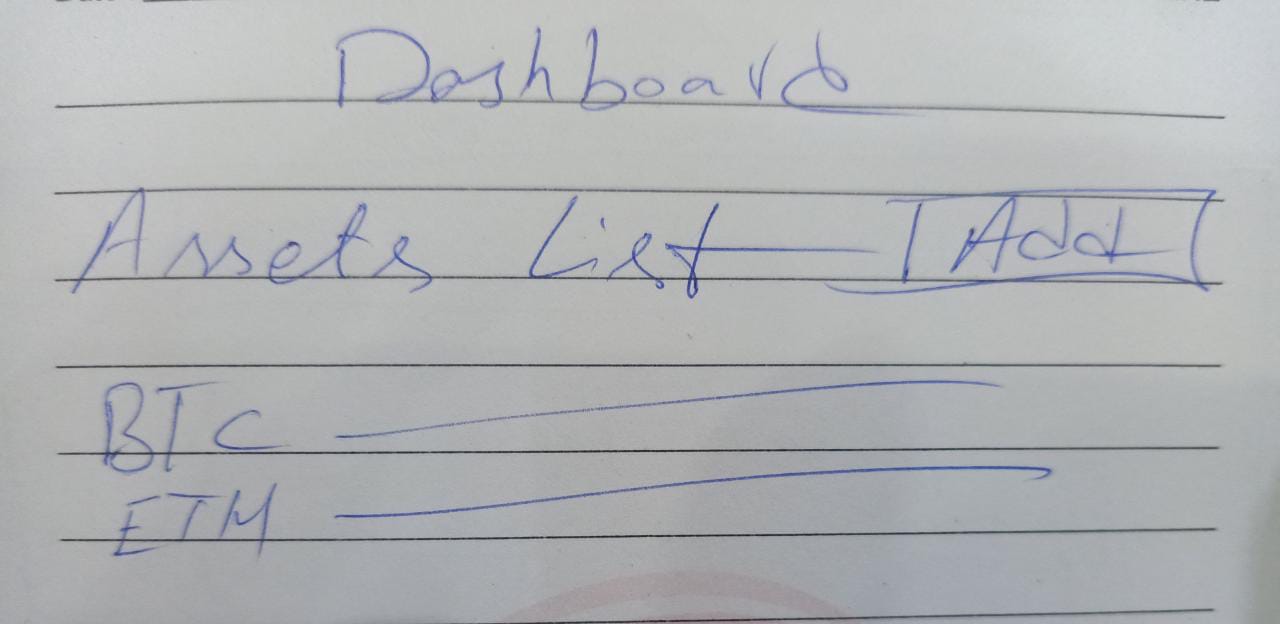 Dashboard
Assets List Add
BTC
ETH